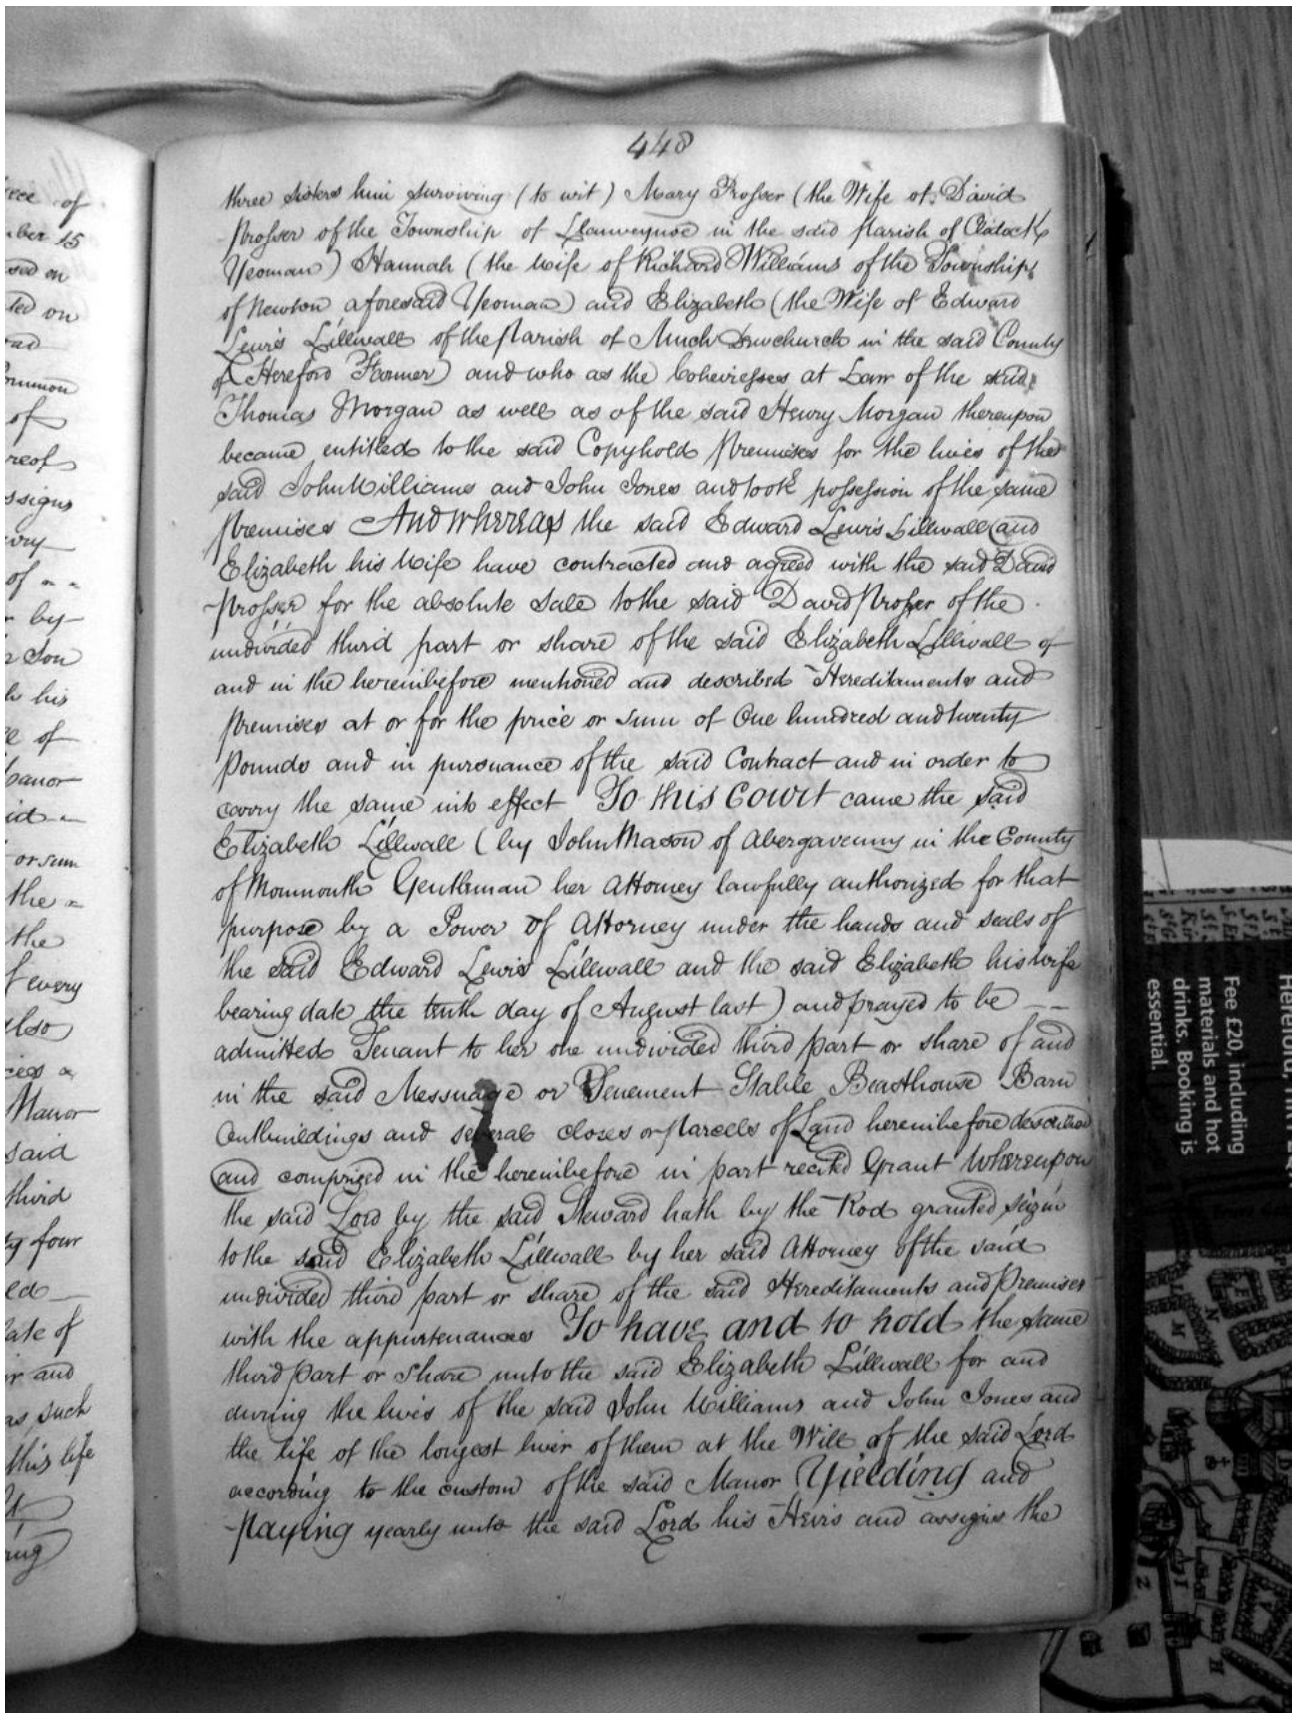 448
three sisters him surviving (to wit) Mary Prosser (the Wife of David
Prosser of the Township of Llanveynoe in the said parish of Clodock
Yeoman) Hannah (the wife of Richard Williams of the Township
of Newton aforesaid Yeoman) and Elizabeth (the Wife of Edward
Lewis Lillwall of the Parish of Much Dewchurch in the said County
of Hereford Farmer) and who as the Coheiresses at Law of the said
Thomas Morgan as well as of the said Henry Morgan thereupon
became entitled to the said Copyhold Premises for the lives of the
said John Williams and John Jones and took possession of the same
Premises And whereas the said Edward Lewis Lillwall and
Elizabeth his Wife have contracted and agreed with the said David
Prosser for the absolute sale to the said David Prosser of the
undivided third part or share of the said Elizabeth Lillwall of
and in the hereinbefore mentioned and described Hereditaments and
Premises at or for the price or sum of One hundred and twenty
Pounds and in pursuance of the said Contract and in order to
carry the same into effect To this Court came the said
Elizabeth Lillwall (by John Mason of Abergavenny in the County
of Monmouth Gentleman her Attorney lawfully authorized for that
purpose by a Power of Attorney under the hands and seals of
the said Edward Lewis Lillwall and the said Elizabeth his wife
bearing date the tenth day of August last) and prayed to be
admitted Tenant to her one undivided third part or share of and
in the said Messuage or Tenement Stable Beasthouse Barn
Outbuildings and several closes or parcels of Land hereinbefore described
and comprized in the hereinbefore in part recited Grant Whereupon
the said Lord by the said Steward hath by the Rod granted seizin
to the said Elizabeth Lillwall by her said Attorney of the said
undivided third part or share of the said Hereditaments and Premises
with the appurtenances To have and to hold the same
third part or share unto the said Elizabeth Lillwall for and
during the lives of the said John Williams and John Jones and
the life of the longest liver of them at the Will of the said Lord
according to the custom of the said Manor Yielding and
Paying yearly unto the said Lord his Heirs and assigns the
of
15
on
on
of
of
by
Son
his
of
or sum
the
the
every
also
Manor
said
third
four
of
and
as such
this life
Fee £20, including
materials and hot
drinks. Booking is
essential.